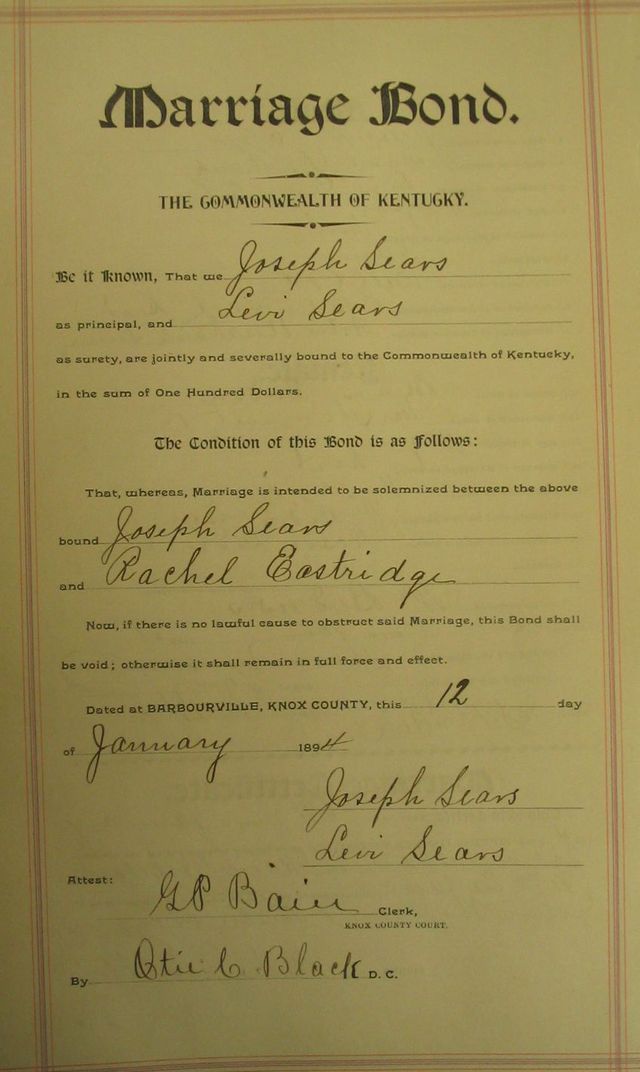 Marriage Bond.
THE COMMONWEALTH OF KENTUCKY.
Be it Known, That we Joseph Sears
as principal, and Levi Sears
as surety, are jointly and severally bound to the Commonwealth of Kentucky,
in the sum of One Hundred Dollars.
The Condition of this Bond is as Follows:
That, whereas, Marriage is intended to be solemnized between the above
bound Joseph Sears
and Rachel Eastridge
Now, if there is no lawful cause to obstruct said Marriage, this Bond shall
be void; otherwise it shall remain in full force and effect.
Dated at BARBOURVILLE, KNOX COUNTY, this 12 day
of January 1894
Joseph Sears
Levi Sears
Attest:
GP Bain Clerk,
KNOX COUNTY COURT.
By Otie C Black D. C.